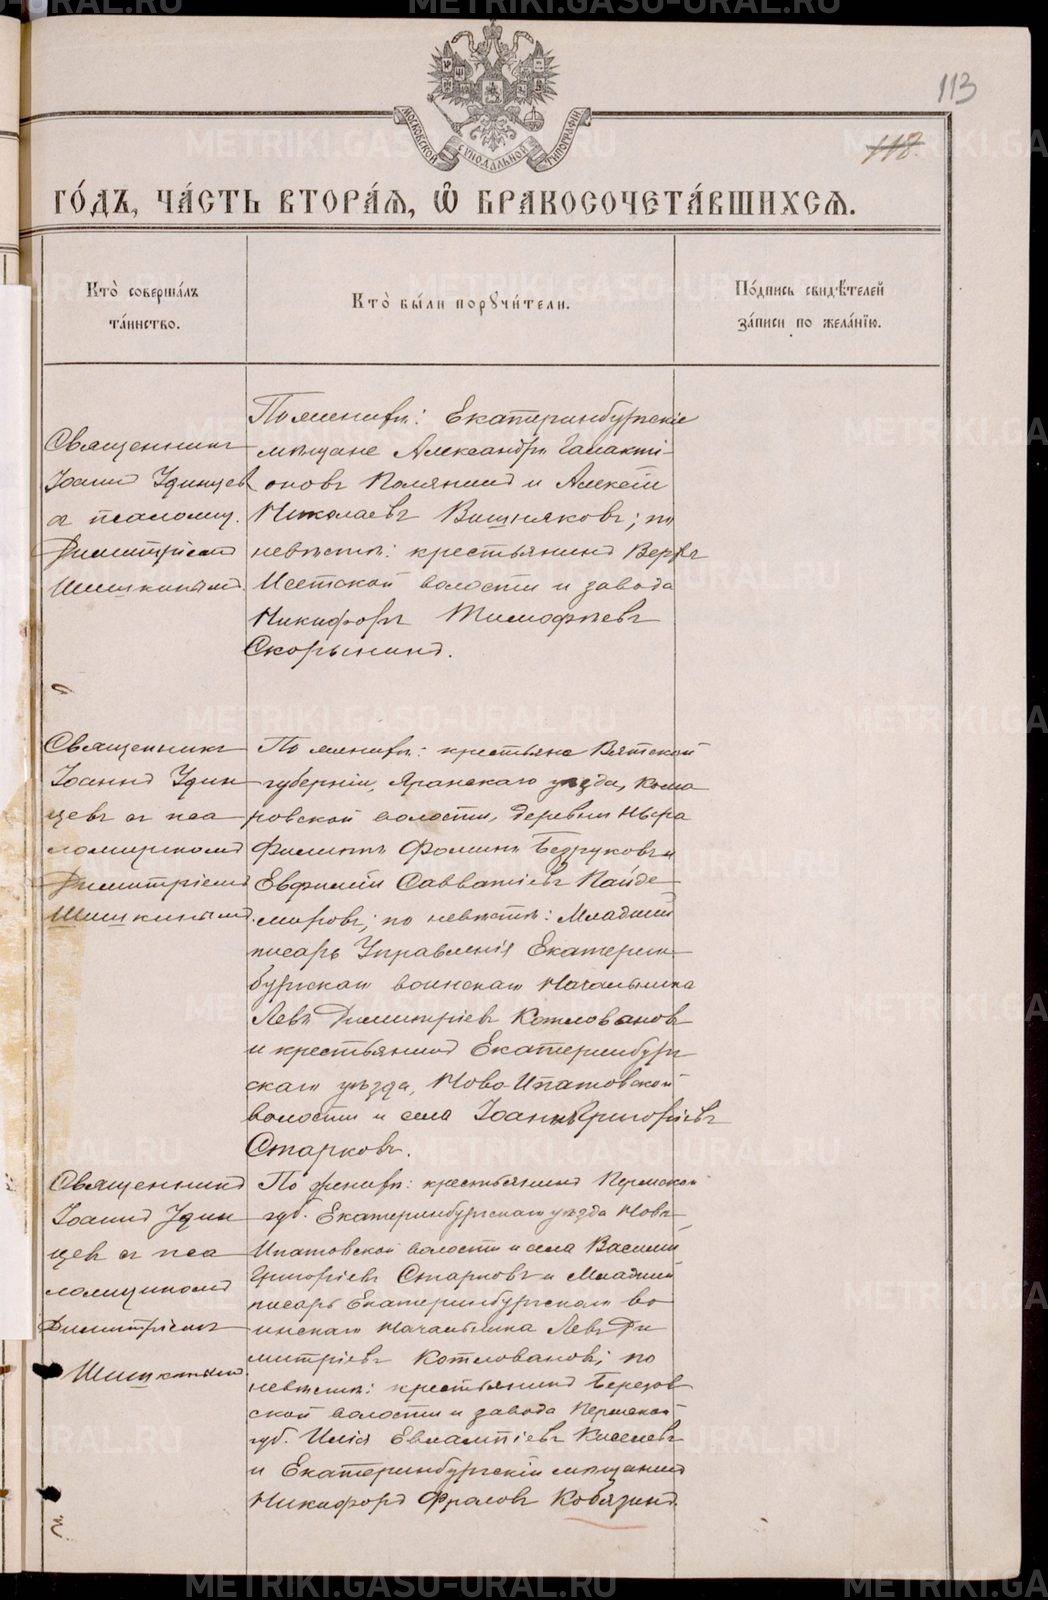 113
118.
МОСКОВСКОЙ СѴНОДАЛЬНОЙ ТИПОГРАФІИ
ГО́ДЪ, ЧА́СТЬ ВТОРА́Я, Ѽ БРАКОСОЧЕТА́ВШИХСЯ.
Кто̀ соверша́лъ
та́инство.
Кто̀ бы́ли порꙋчи́тели.
По́дпись свидѣ́телей
за́писи по жела́нїю.
Священникъ
Іоаннъ Удинцев
съ псаломщ.
Димитріемъ
Шишкинымъ.
По женихѣ: Екатеринбургскіе
мѣщане Александръ Галакті-
оновъ Полянинъ и Алексій
Николаевъ Вишняковъ; по
невѣстѣ: крестьянинъ Верхъ
Исетской волости и завода
Никифоръ Тимофѣевъ
Скорынинъ.
Священникъ
Іоаннъ Удин
цевъ съ пса
ломщикомъ
Димитріемъ
Шишкинымъ.
По женихѣ: крестьяне Вятской
губерніи, Яранскаго уѣзда, Кома
ровской волости, деревни
Филиппъ Фоминъ Безруковъ и
Евфимій Савватіевъ Пайде-
мировъ; по невѣстѣ: Младшій
писарь Управленія Екатерин-
бургскаго воинскаго Начальника
Левъ Димитріевъ Котловановъ
и крестьянинъ Екатеринбург-
скаго уѣзда, Ново-Ипатовской
волости и села Іоаннъ Григоріевъ
Старковъ.
Священникъ
Іоаннъ Удин
цевъ съ пса
ломщикомъ
Димитріемъ
Шишкинымъ.
По женихѣ: крестьянинъ Пермской
губ. Екатеринбургскаго уѣзда Ново-
Ипатовской волости и села Василій
Григоріевъ Старковъ и Младшій
писарь Екатеринбургскаго во
инскаго Начальника Левъ Ди
митріевъ Котловановъ; по
невѣстѣ: крестьянинъ Березов
ской волости и завода Пермской
губ. Илія Евлампіевъ Киселевъ
и Екатеринбургскій мѣщанинъ
Никифоръ Фроловъ Кобязинъ.